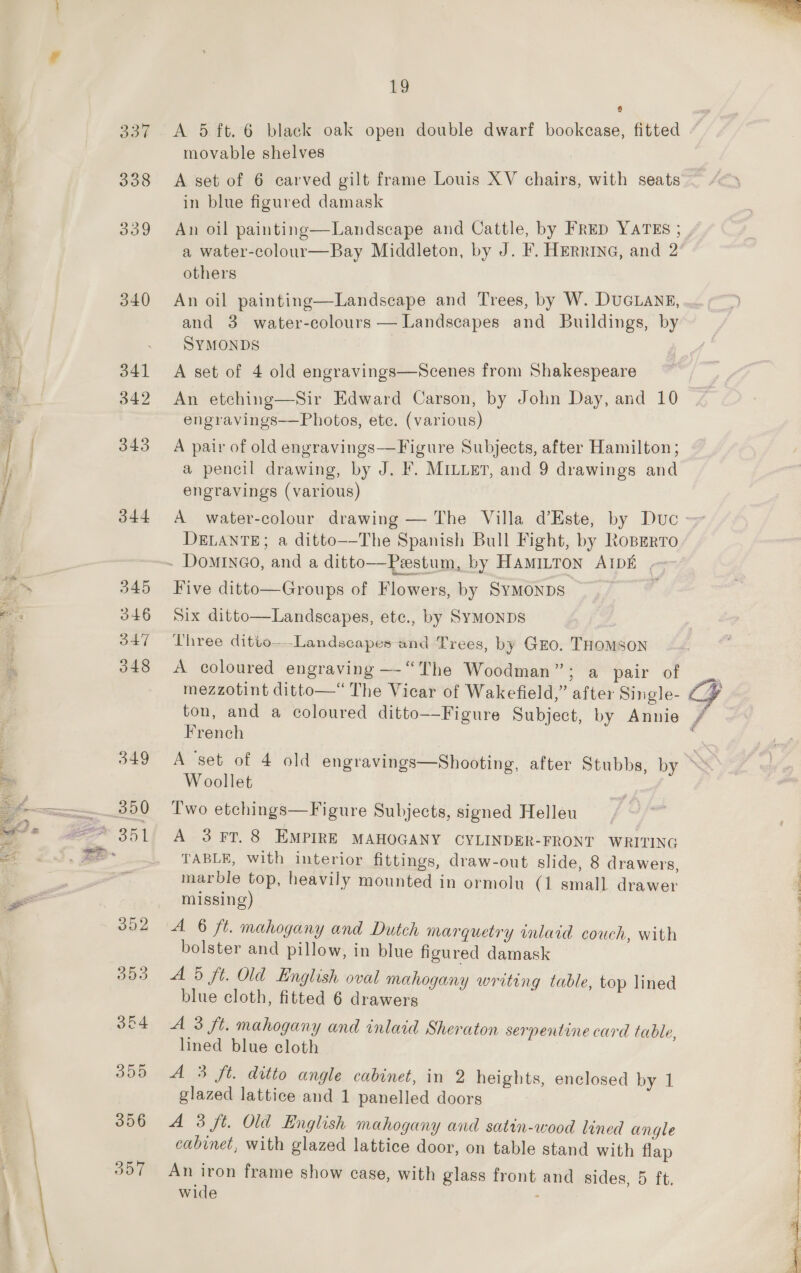 19
337 A 5 ft. 6 black oak open double dwarf bookcase, fitted
movable shelves
338 A set of 6 carved gilt frame Louis XV chairs, with seats
in blue figured damask
339 An oil painting—Landscape and Cattle, by FRED YATES ;
a water-colour—Bay Middleton, by J. F. HERRING, and 2
others
340 An oil painting—Landscape and Trees, by W. DUGLANE,
and 3 water-colours — Landscapes and Buildings, by
SYMONDS
341 A set of 4 old engravings—Scenes from Shakespeare
342 An etching—Sir Edward Carson, by John Day, and 10
engravings—Photos, etc. (various)
343 A pair of old engravings—Figure Subjects, after Hamilton;
a pencil drawing, by J. F. MILLET, and 9 drawings and
engravings (various)
344 A water-colour drawing — The Villa d'Este, by DUC
DELANTE; a ditto—The Spanish Bull Fight, by ROBERTO
DOMINGO, and a ditto—Pæstum, by HAMILTON AIDÉ
345 Five ditto—Groups of Flowers, by SYMONDS
346 Six ditto—Landscapes, etc., by SYMONDS
347 Three ditto—Landscapes and Trees, by GEO. THOMSON
348 A coloured engraving—"The Woodman"; a pair of
mezzotint ditto—"The Vicar of Wakefield," after Single-
ton, and a coloured ditto—Figure Subject, by Annie
French
349 A set of 4 old engravings—Shooting, after Stubbs, by
Woollet
350 Two etchings—Figure Subjects, signed Helleu
351 A 3 FT. 8 EMPIRE MAHOGANY CYLINDER-FRONT WRITING
TABLE, with interior fittings, draw-out slide, 8 drawers,
marble top, heavily mounted in ormolu (1 small drawer
missing)
352 A 6 ft. mahogany and Dutch marquetry inlaid couch, with
bolster and pillow, in blue figured damask
353 A 5 ft. Old English oval mahogany writing table, top lined
blue cloth, fitted 6 drawers
354 A 3 ft. mahogany and inlaid Sheraton serpentine card table,
lined blue cloth
355 A 3 ft. ditto angle cabinet, in 2 heights, enclosed by 1
glazed lattice and 1 panelled doors
356 A 3 ft. Old English mahogany and satin-wood lined angle
cabinet, with glazed lattice door, on table stand with flap
357 An iron frame show case, with glass front and sides, 5 ft.
wide